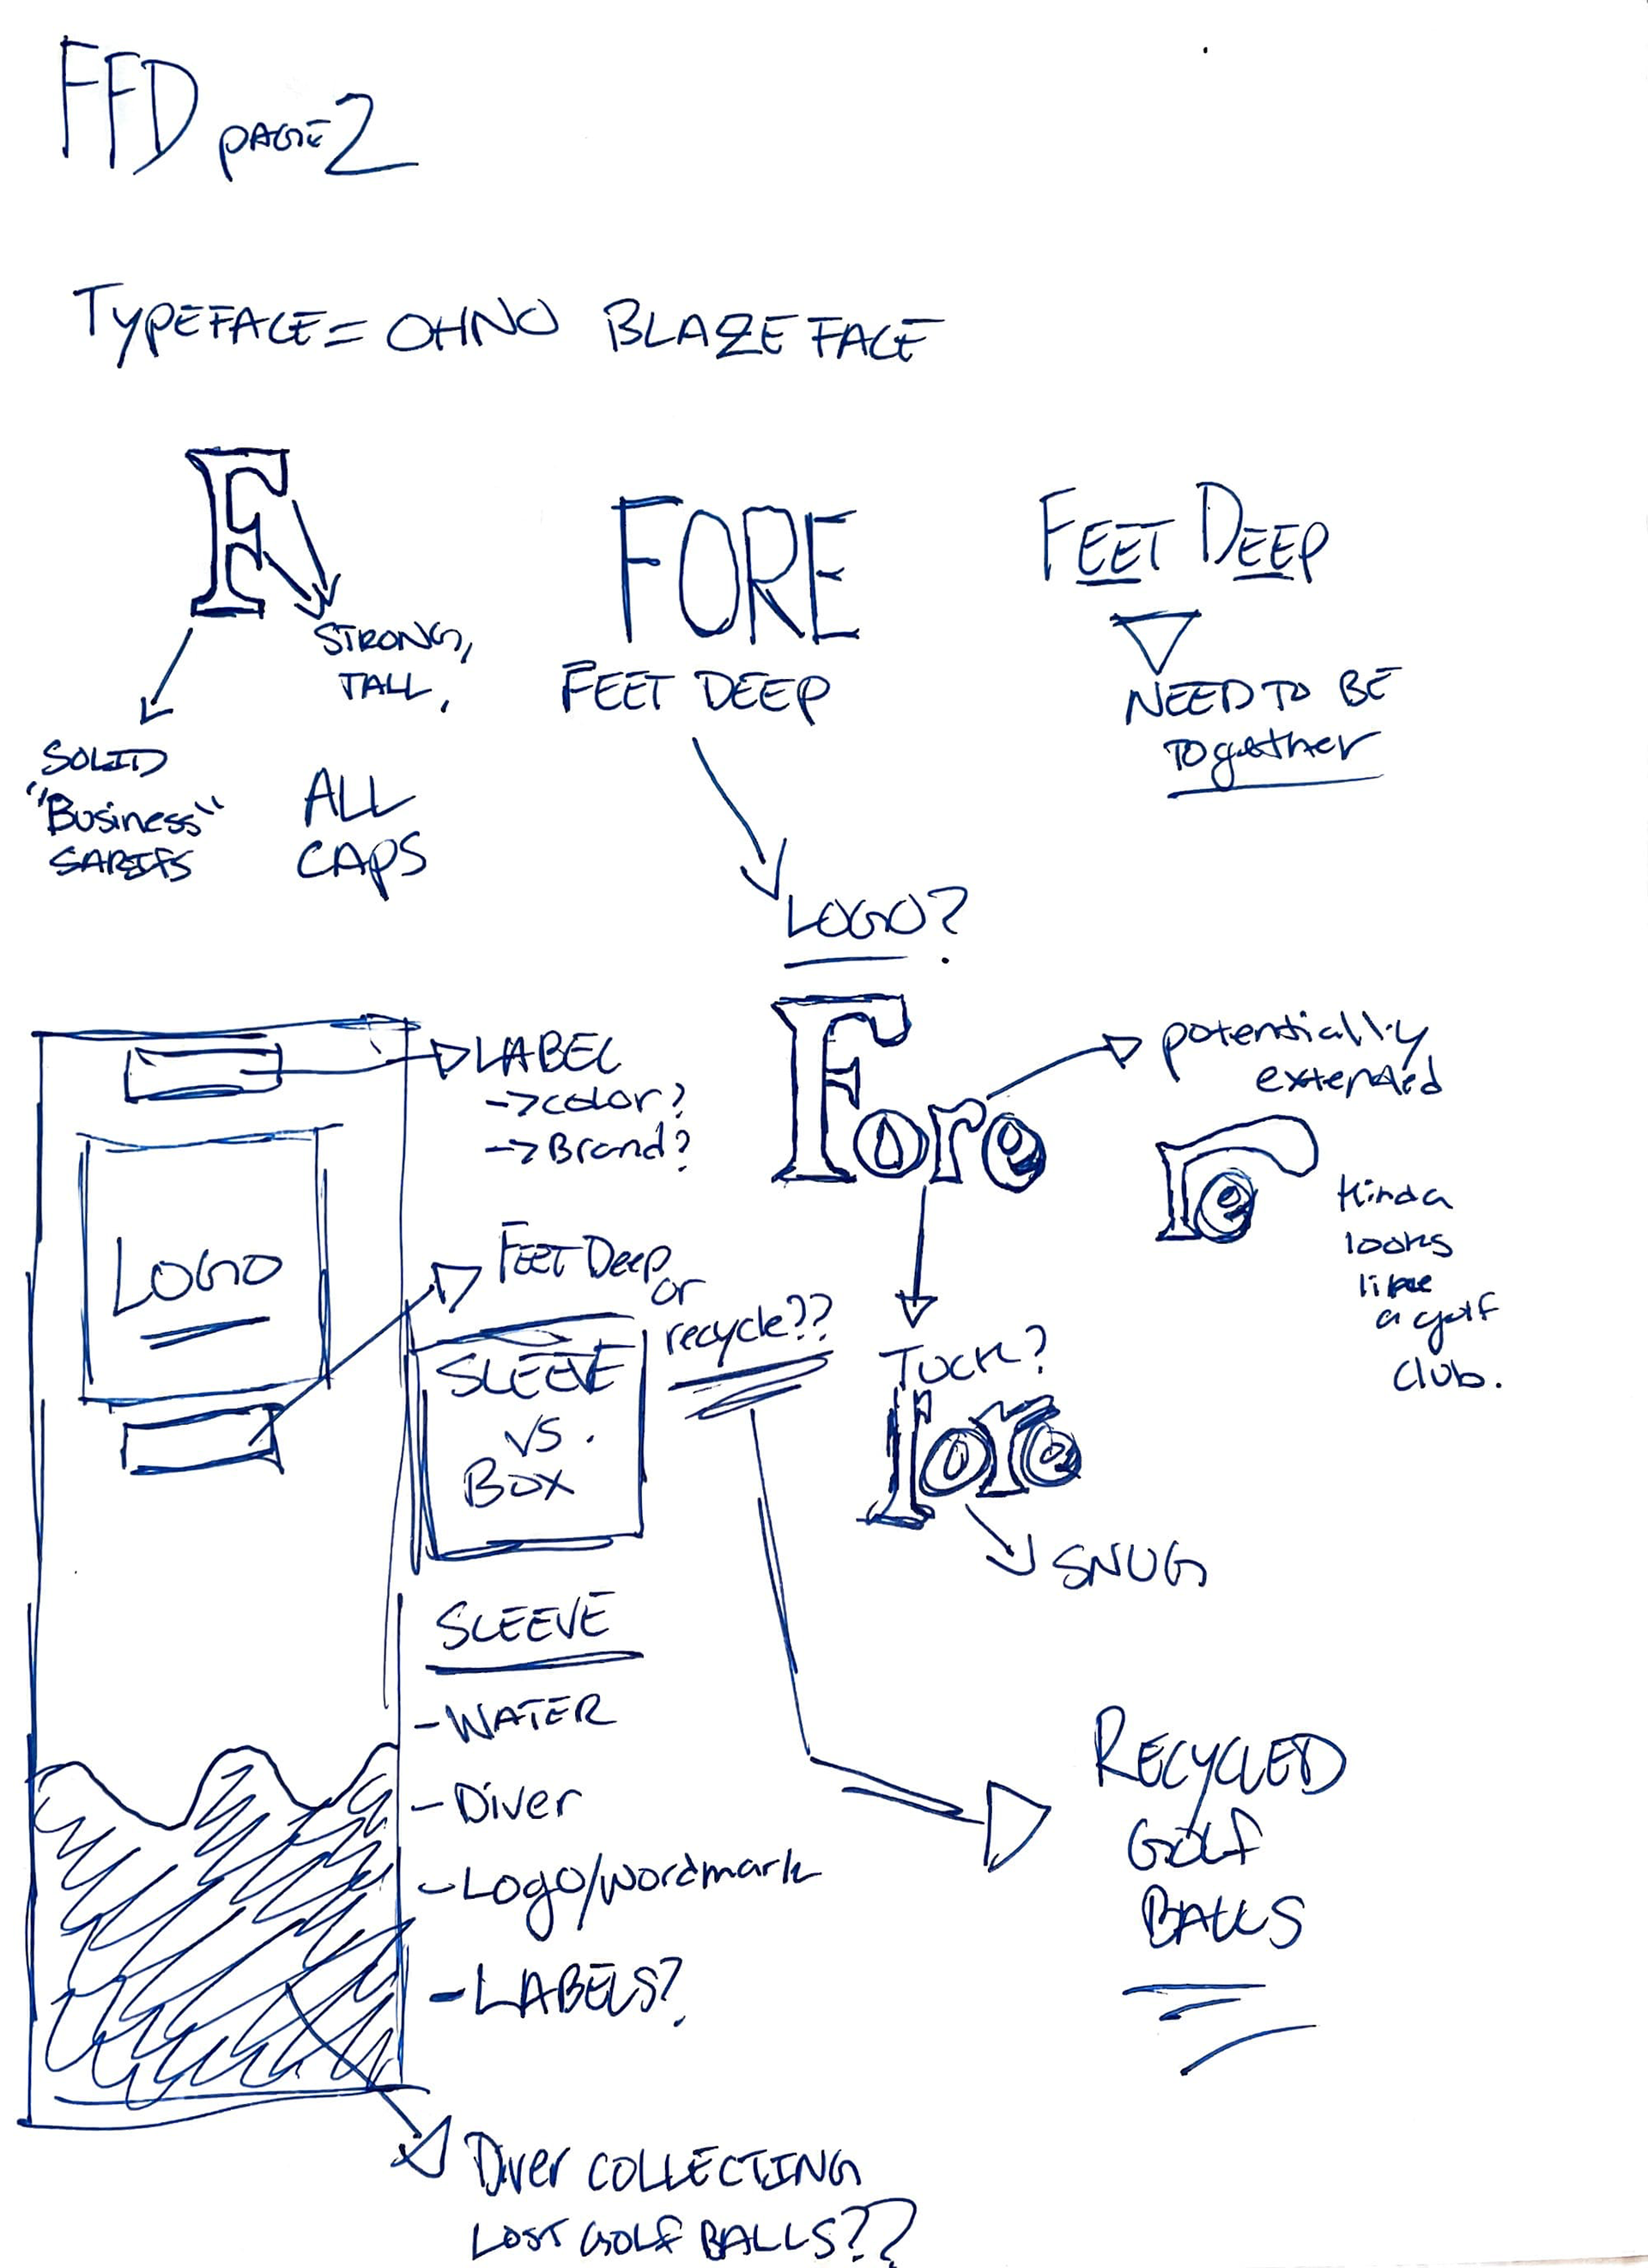 FFD page 2
TYPEFACE = OHNO BLAZEFACE
F
STRONG,
TALL,
SOLID
"Business"
SARIFS
ALL
CAPS
FORE
FEET DEEP
FEET DEEP
NEED TO BE
TOgether
LOGO?
Fore
potentially
extended
re
kinda
looks
like
a golf
club.
LABEL
->color?
->Brand?
LOGO
FEET Deep
or
recycle??
SLEEVE
VS.
BOX
TUCK?
fore
SNUG
SLEEVE
-WATER
-Diver
-Logo/wordmark
-LABELS?
RECYCLED
GOLF
BALLS
Diver COLLECTING
LOST GOLF BALLS??